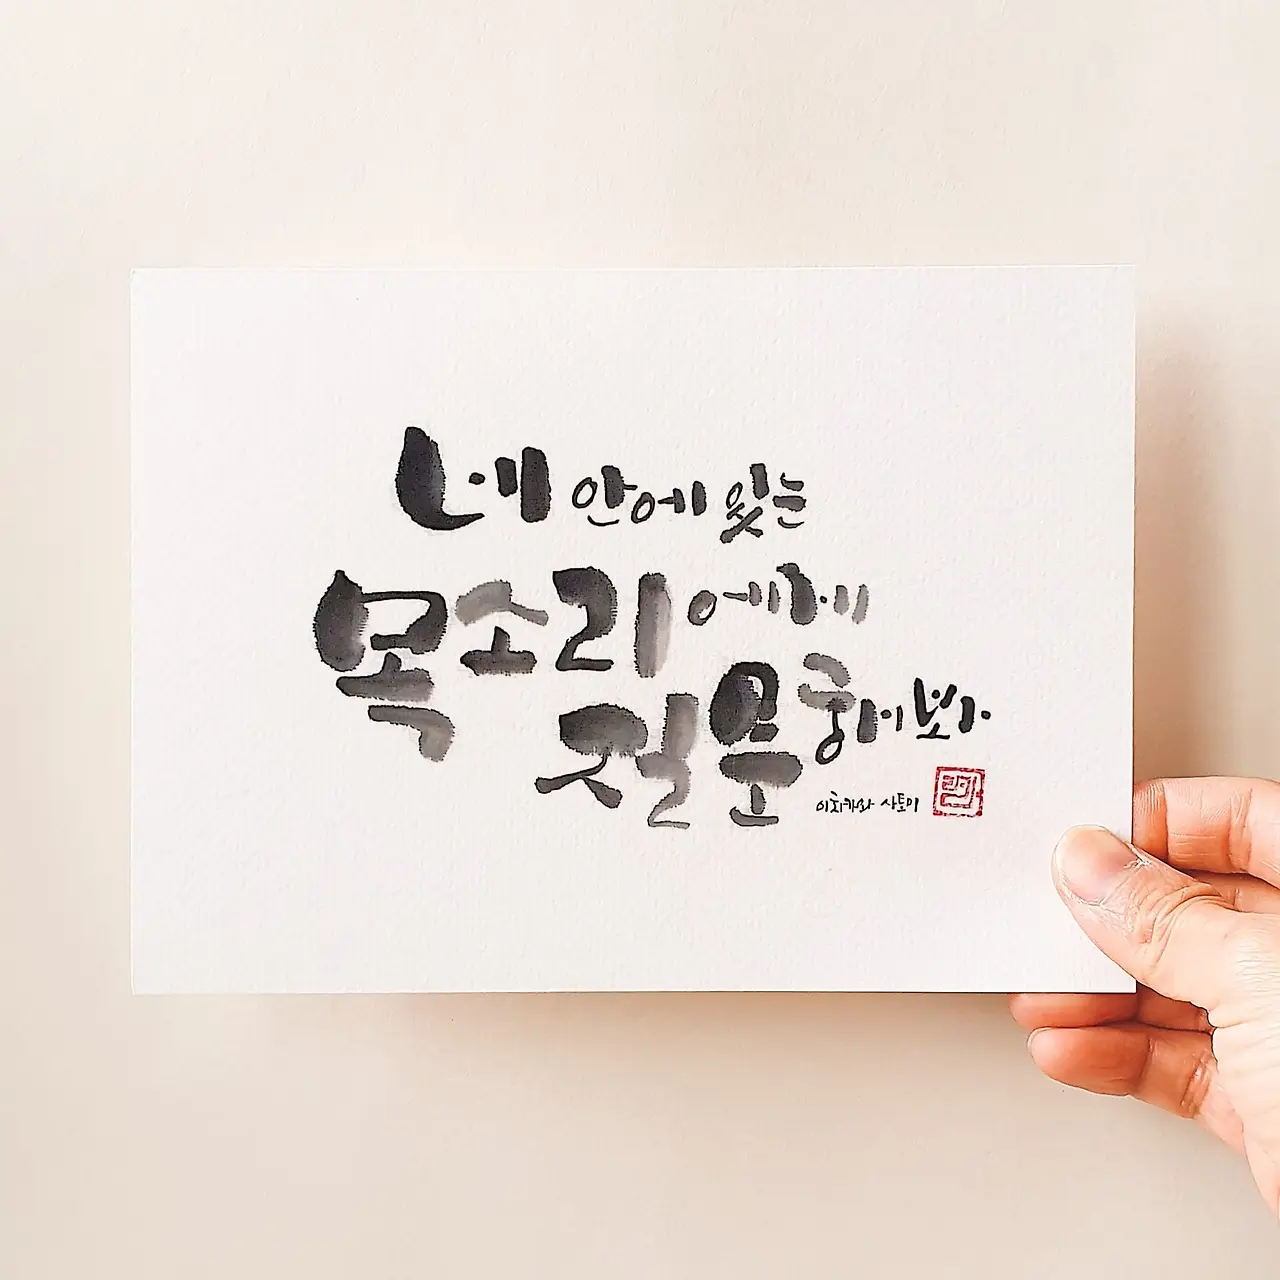 네 안에 있는
목소리에게
질문해봐
이치카와 사토미